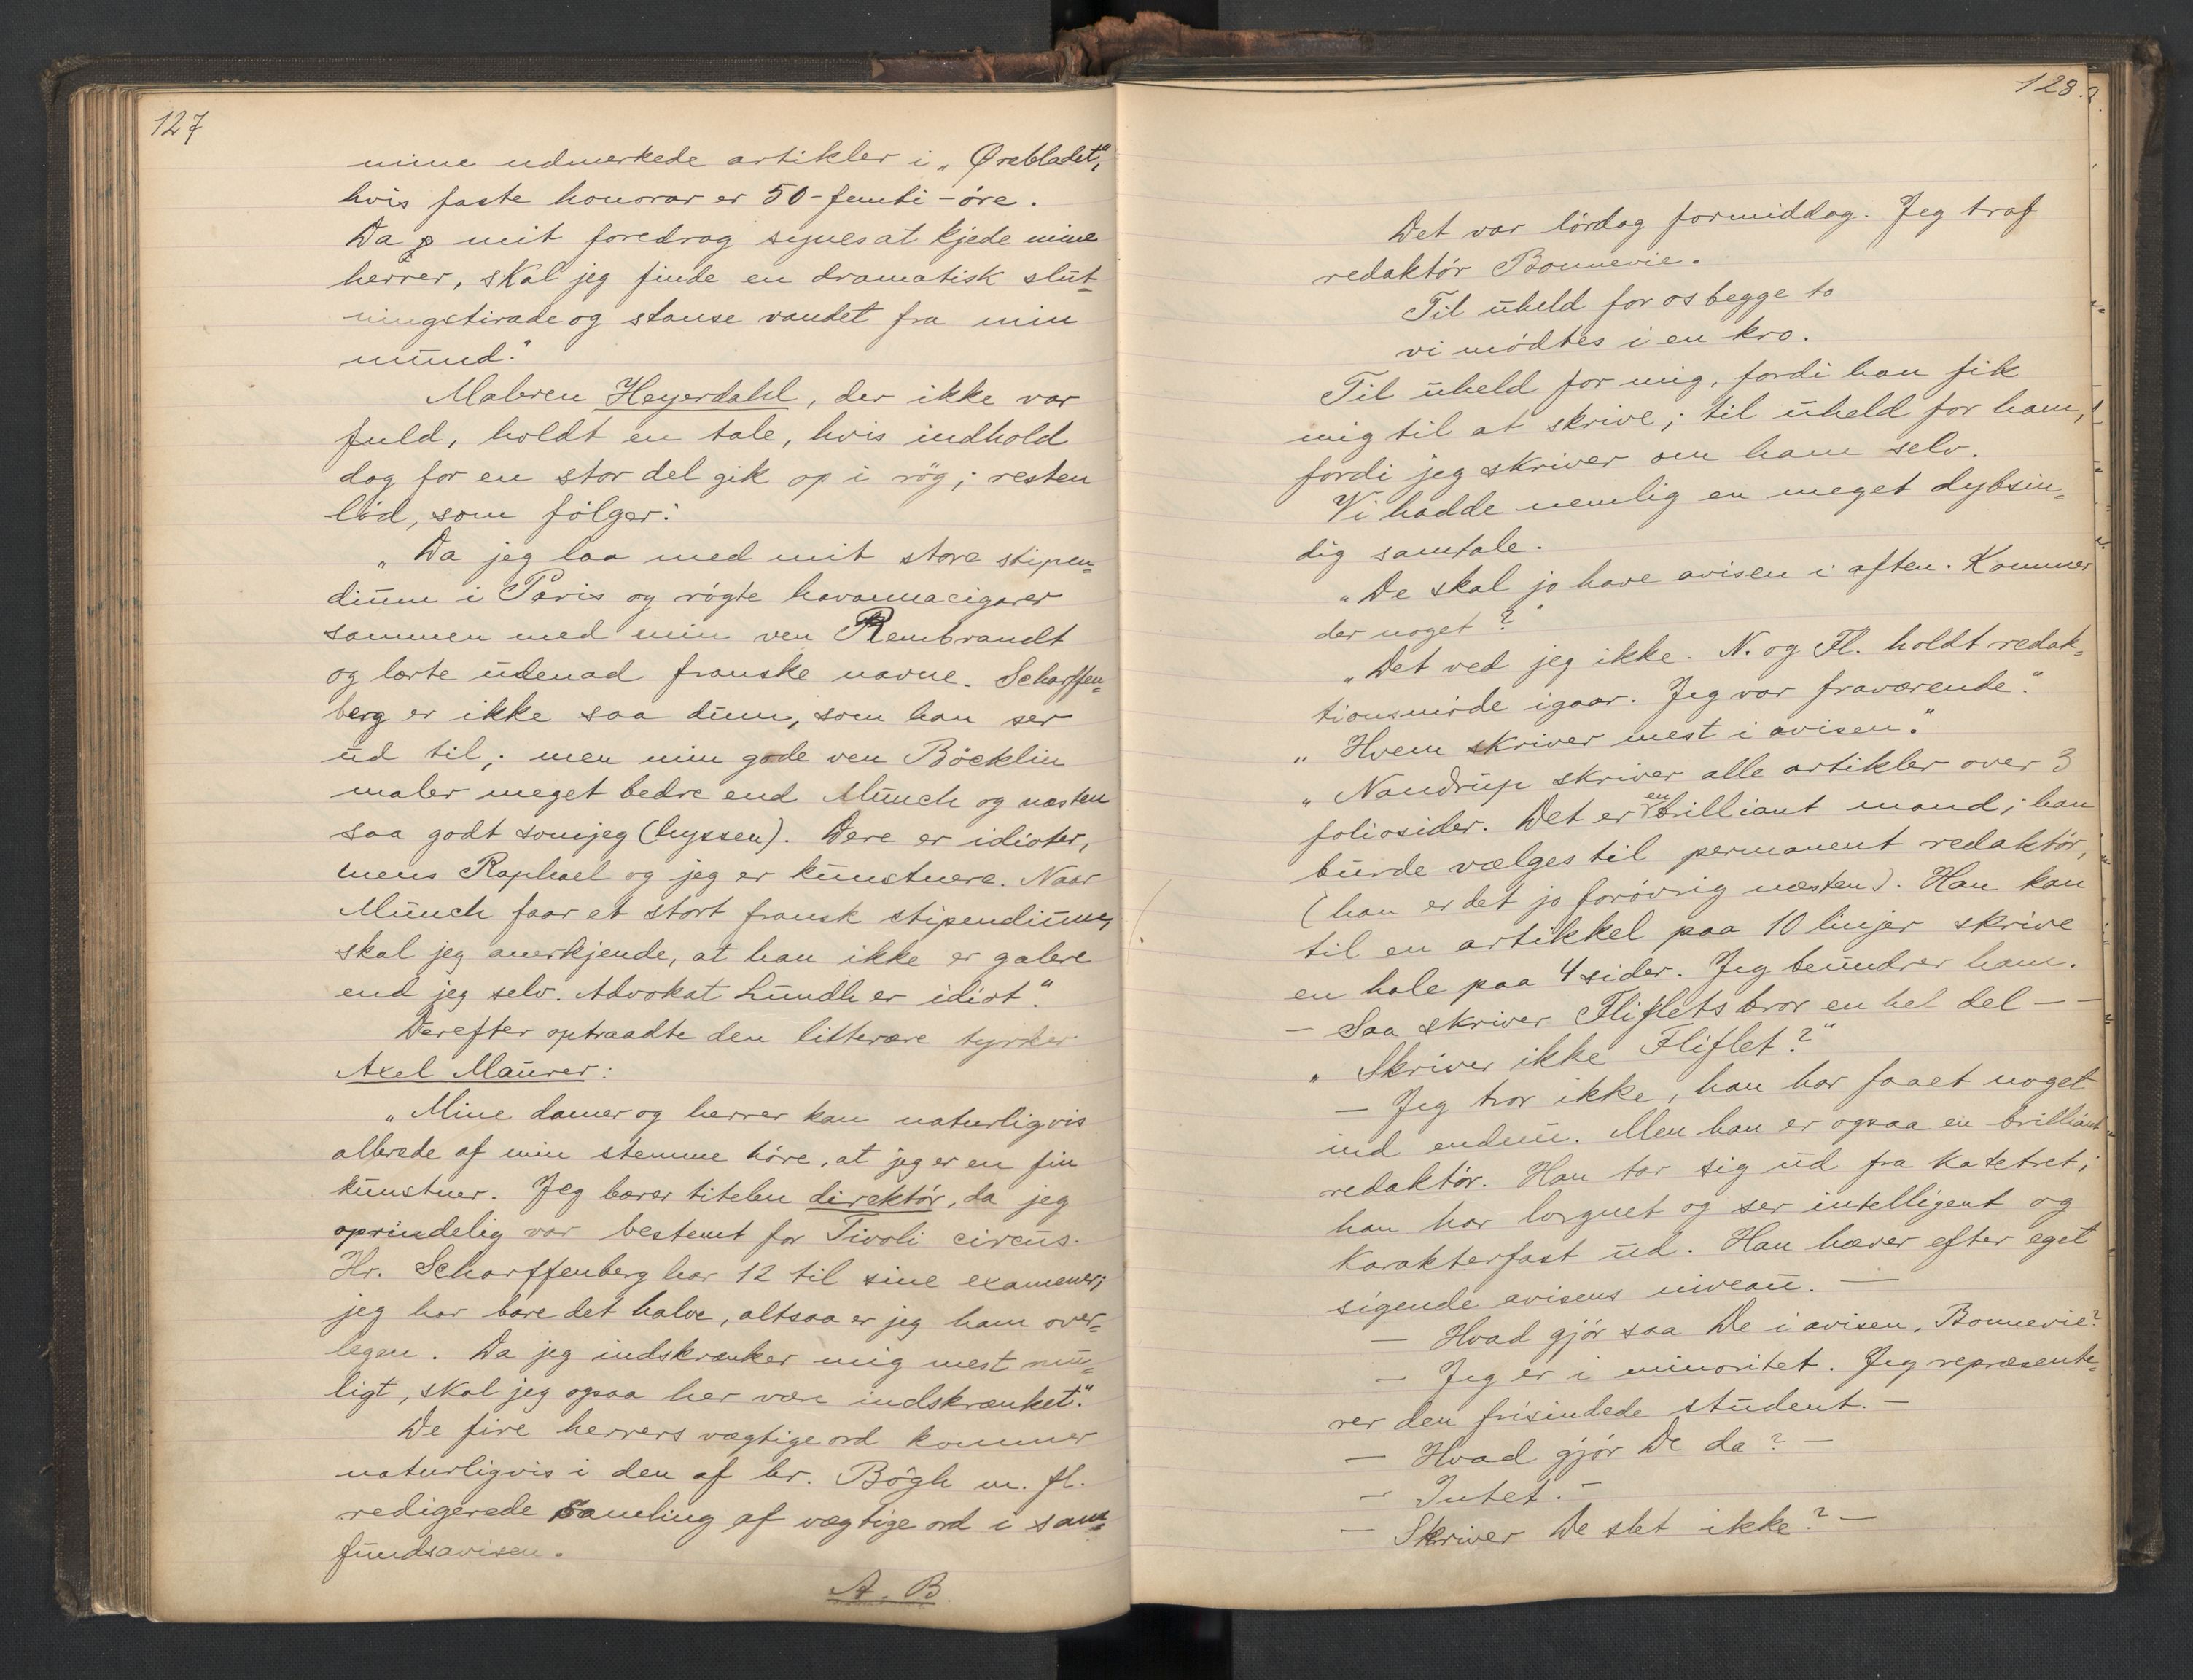 127
mine udmerkede artikler i „Ørebladet“,
hvis faste honorar er 50-femti-öre.
Da mit foredrag synes at kjede mine
herrer, skal jeg finde en dramatisk slut-
ningstirade og stanse vandet fra min
mund.“
Maleren Heyerdahl, der ikke var
fuld, holdt en tale, hvis indhold
dog for en stor del gik op i rög; resten
löd, som fölger:
„Da jeg laa med mit store stipen-
dium i Paris og rögte havannacigarer
sammen med min ven Rembrandt
og lærte udenad franske navne. Scharffen-
berg er ikke saa dum, som han ser
ud til; men min gode ven Böcklin
maler meget bedre end Munch og næsten
saa godt som jeg (hyssen). Dere er idioter,
mens Raphael og jeg er kunstnere. Naar
Munch faar et stort fransk stipendium,
skal jeg anerkjende, at han ikke er galere
end jeg selv. Advokat Lundh er idiot“.
Derefter optraadte den litterære tyrker
Axel Maurer:
„Mine damer og herrer kan naturligvis
allerede af min stemme höre, at jeg er en fin
kunstner. Jeg bærer titelen direktör, da jeg
oprindelig var bestemt for Tivoli circus.
Hr. Scharffenberg har 12 til sine examener;
jeg har bare det halve, altsaa er jeg ham over-
legen. Da jeg indskrænker mig mest mu-
ligt, skal jeg ogsaa her være indskrænket“.
De fire herrers vægtige ord kommer
naturligvis i den af hr. Bögh m. fl.
redigerede samling af vægtige ord i sam-
fundsavisen.
A. B.
128.
Det var lördag formiddag. Jeg traf
redaktör Bonnevie.
Til uheld for os begge to
vi mödtes i en kro.
Til uheld for mig, fordi han fik
mig til at skrive; til uheld for ham,
fordi jeg skriver om ham selv.
Vi hadde nemlig en meget dybsin-
dig samtale.
„De skal jo have avisen i aften. Kommer
der noget?“
„Det ved jeg ikke. N. og Fl. holdt redak-
tionsmöde igaar. Jeg var fraværende“.
„Hvem skriver mest i avisen.“
„Nandrup skriver alle artikler over 3
foliosider. Det er en brilliant mand; han
burde vælges til permanent redaktör,
(han er det jo forövrig næsten). Han kan
til en artikkel paa 10 linjer skrive
en hale paa 4 sider. Jeg beundrer ham.
— Saa skriver Fliflets bror en hel del — —
„Skriver ikke Fliflet?“
— Jeg tror ikke, han har faaet noget
ind endnu. Men han er ogsaa en brilliant
redaktör. Han tar sig ud fra katetret;
han har lorgnet og ser intelligent og
karakterfast ud. Han hæver efter eget
sigende avisens niveau. —
— Hvad gjör saa De i avisen, Bonnevie?
— Jeg er i minoritet. Jeg repræsente-
rer den frisindede student. —
— Hvad gjör De da? —
— Intet. —
— Skriver De slet ikke? —